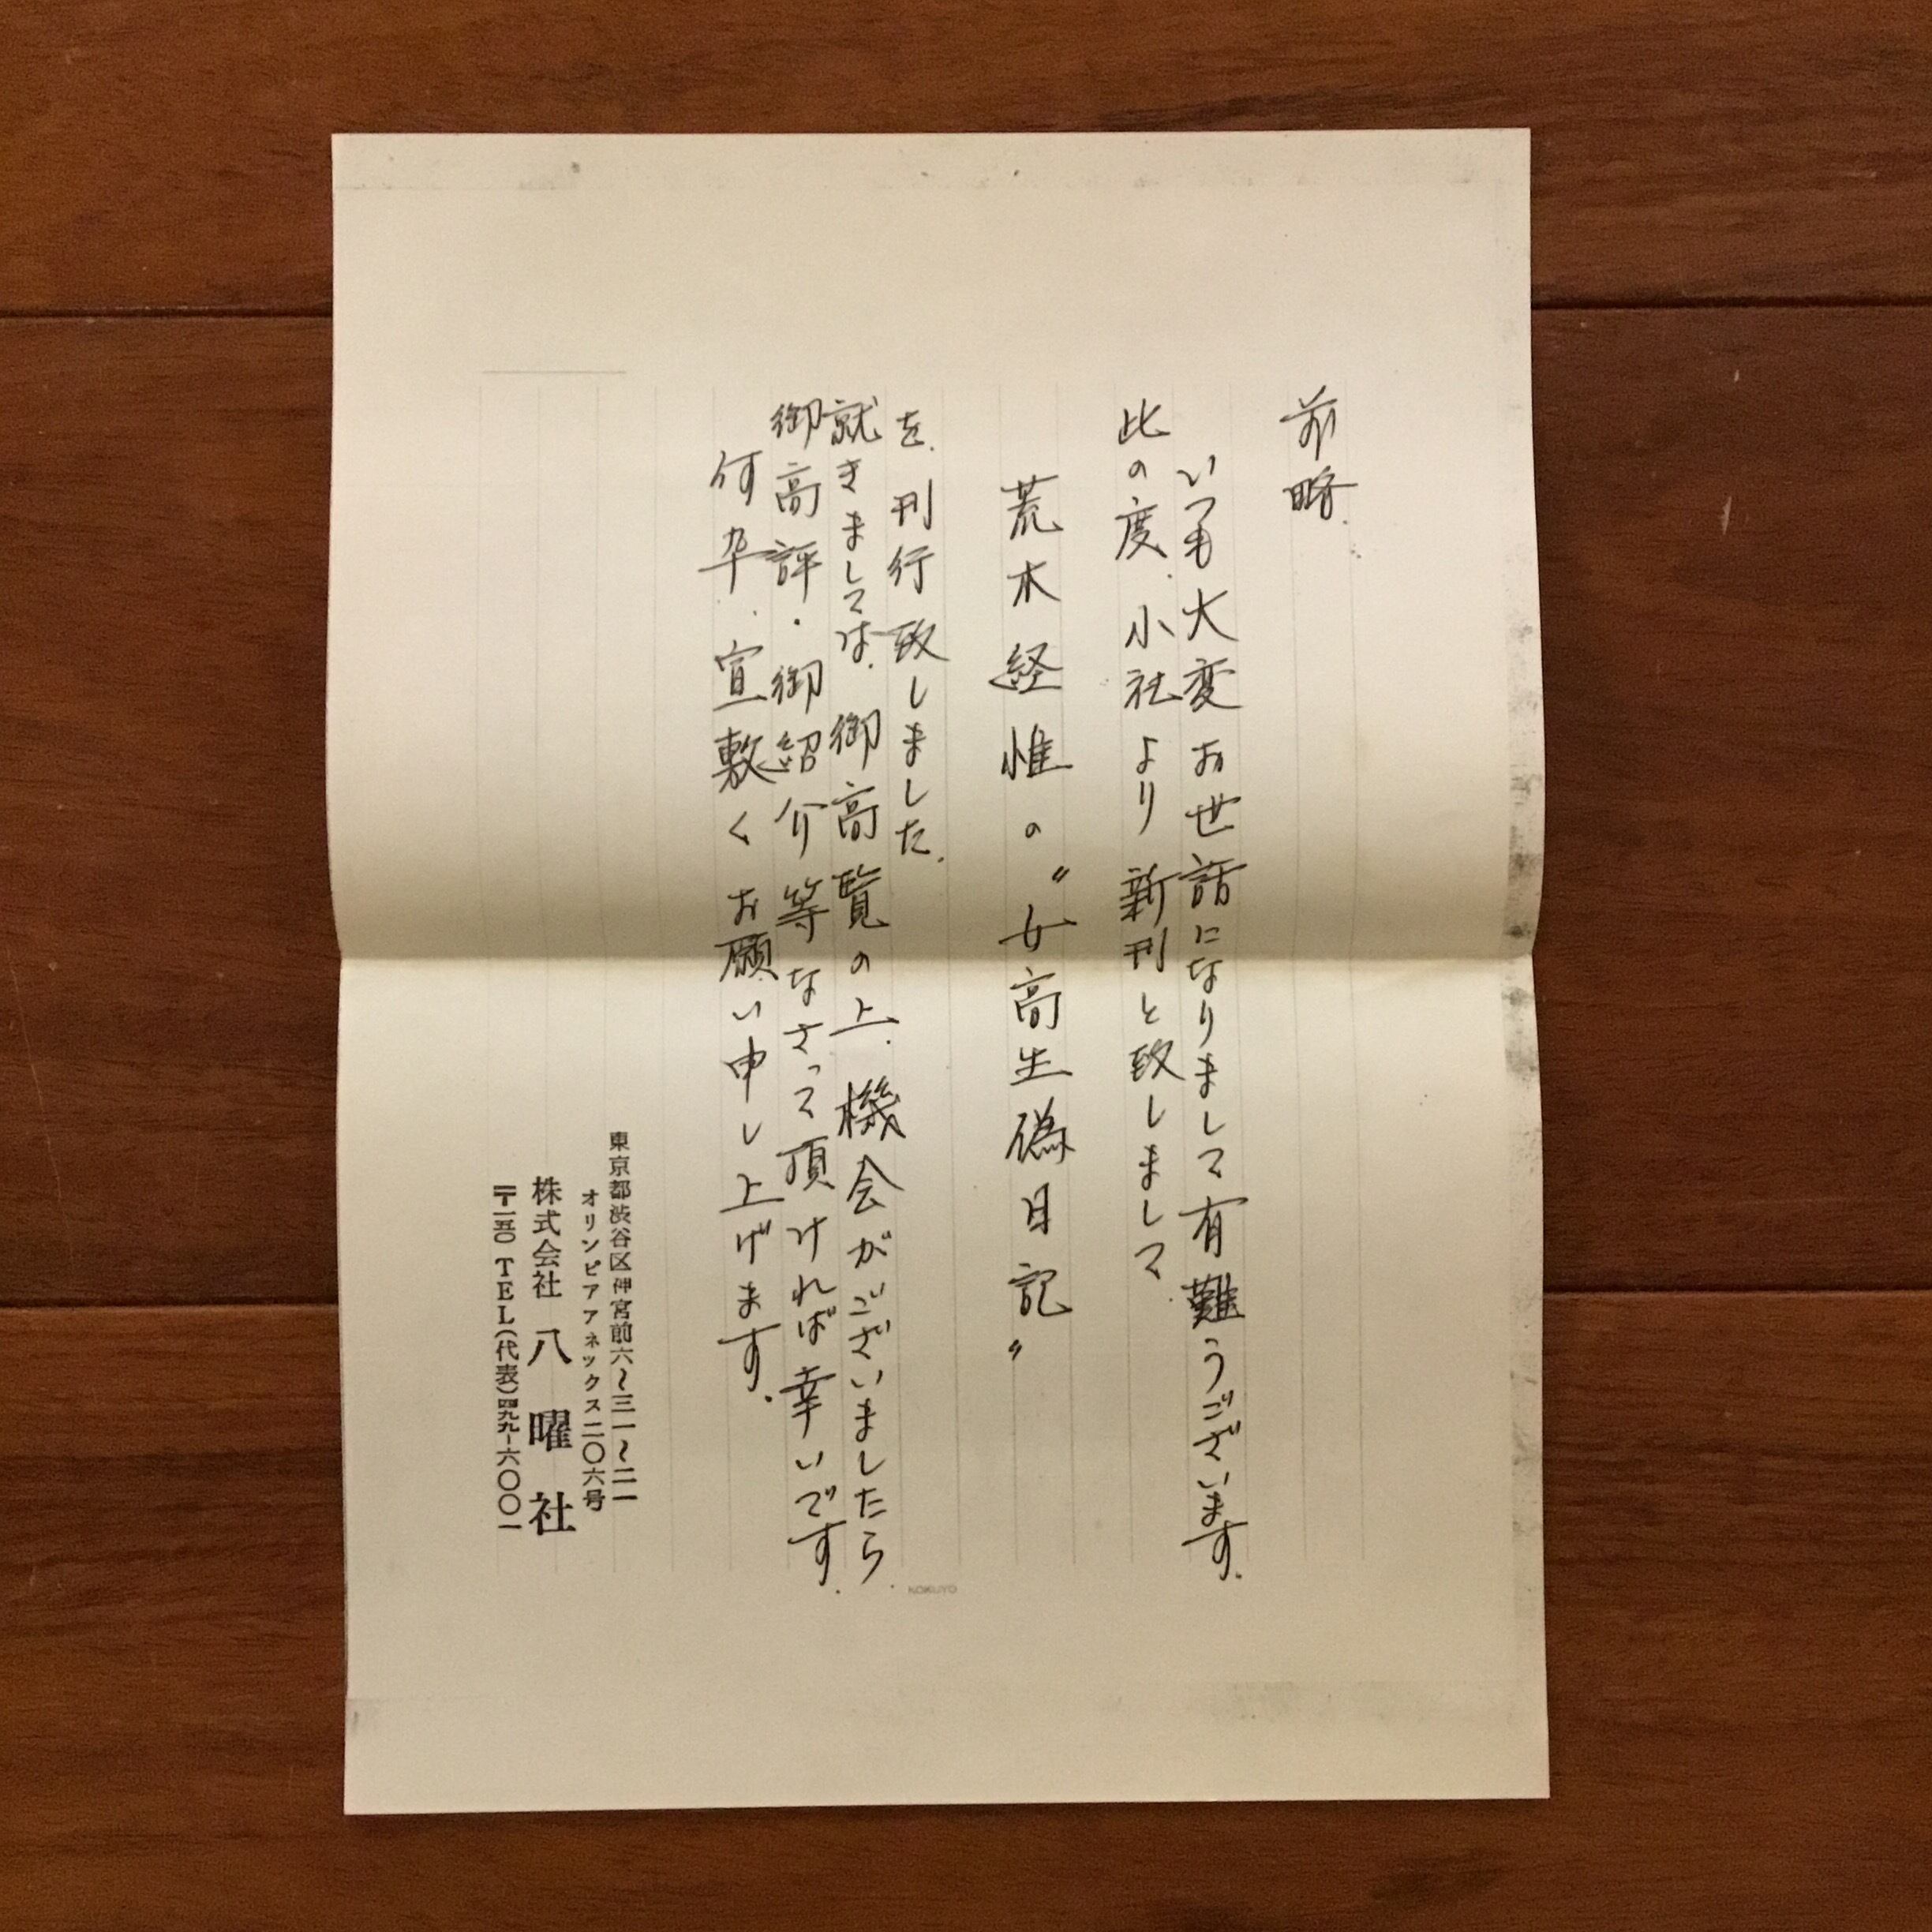 前略.
いつも大変お世話になりまして有難うございます.
此の度.小社より新刊と致しまして.
荒木経惟の〝女高生偽日記〟
を.刊行致しました.
就きましては.御高覧の上.機会がございましたら.
御高評・御紹介等なさって頂ければ幸いです.
何卆.宜敷くお願い申し上げます.
東京都渋谷区神宮前六〜三一〜二一
オリンピアアネックス二〇六号
株式会社 八曜社
〒一五〇 TEL(代表)四九九-六〇〇一
KOKUYO